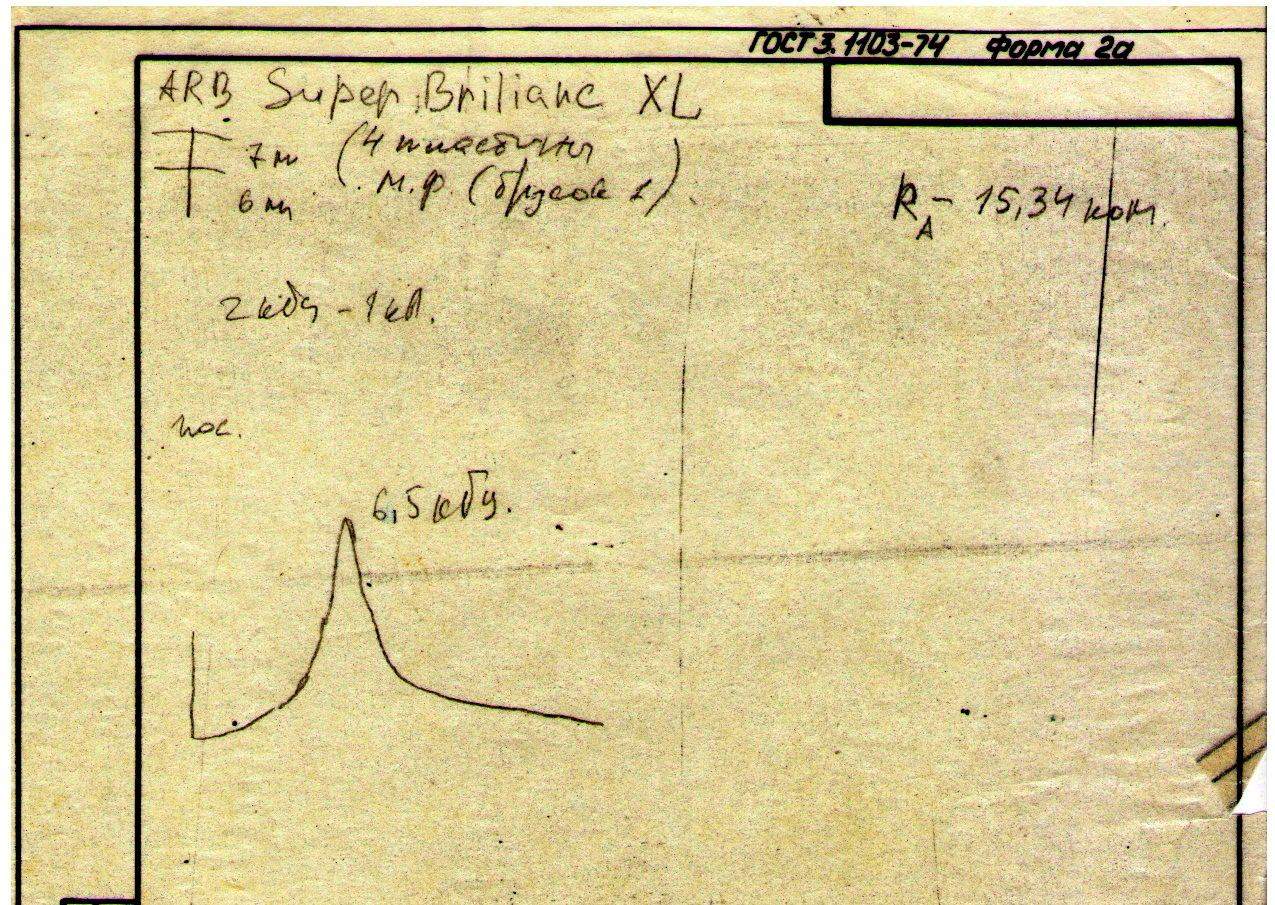 ГОСТ 3.1103-74 Форма 2а
ARB Super Brilianc XL
7 м (4 пластины
6 м м.ф. (брусок 2)
R_A - 15,34 ком.
2 кбц - 1 кл.
пос.
6,5 кбц.